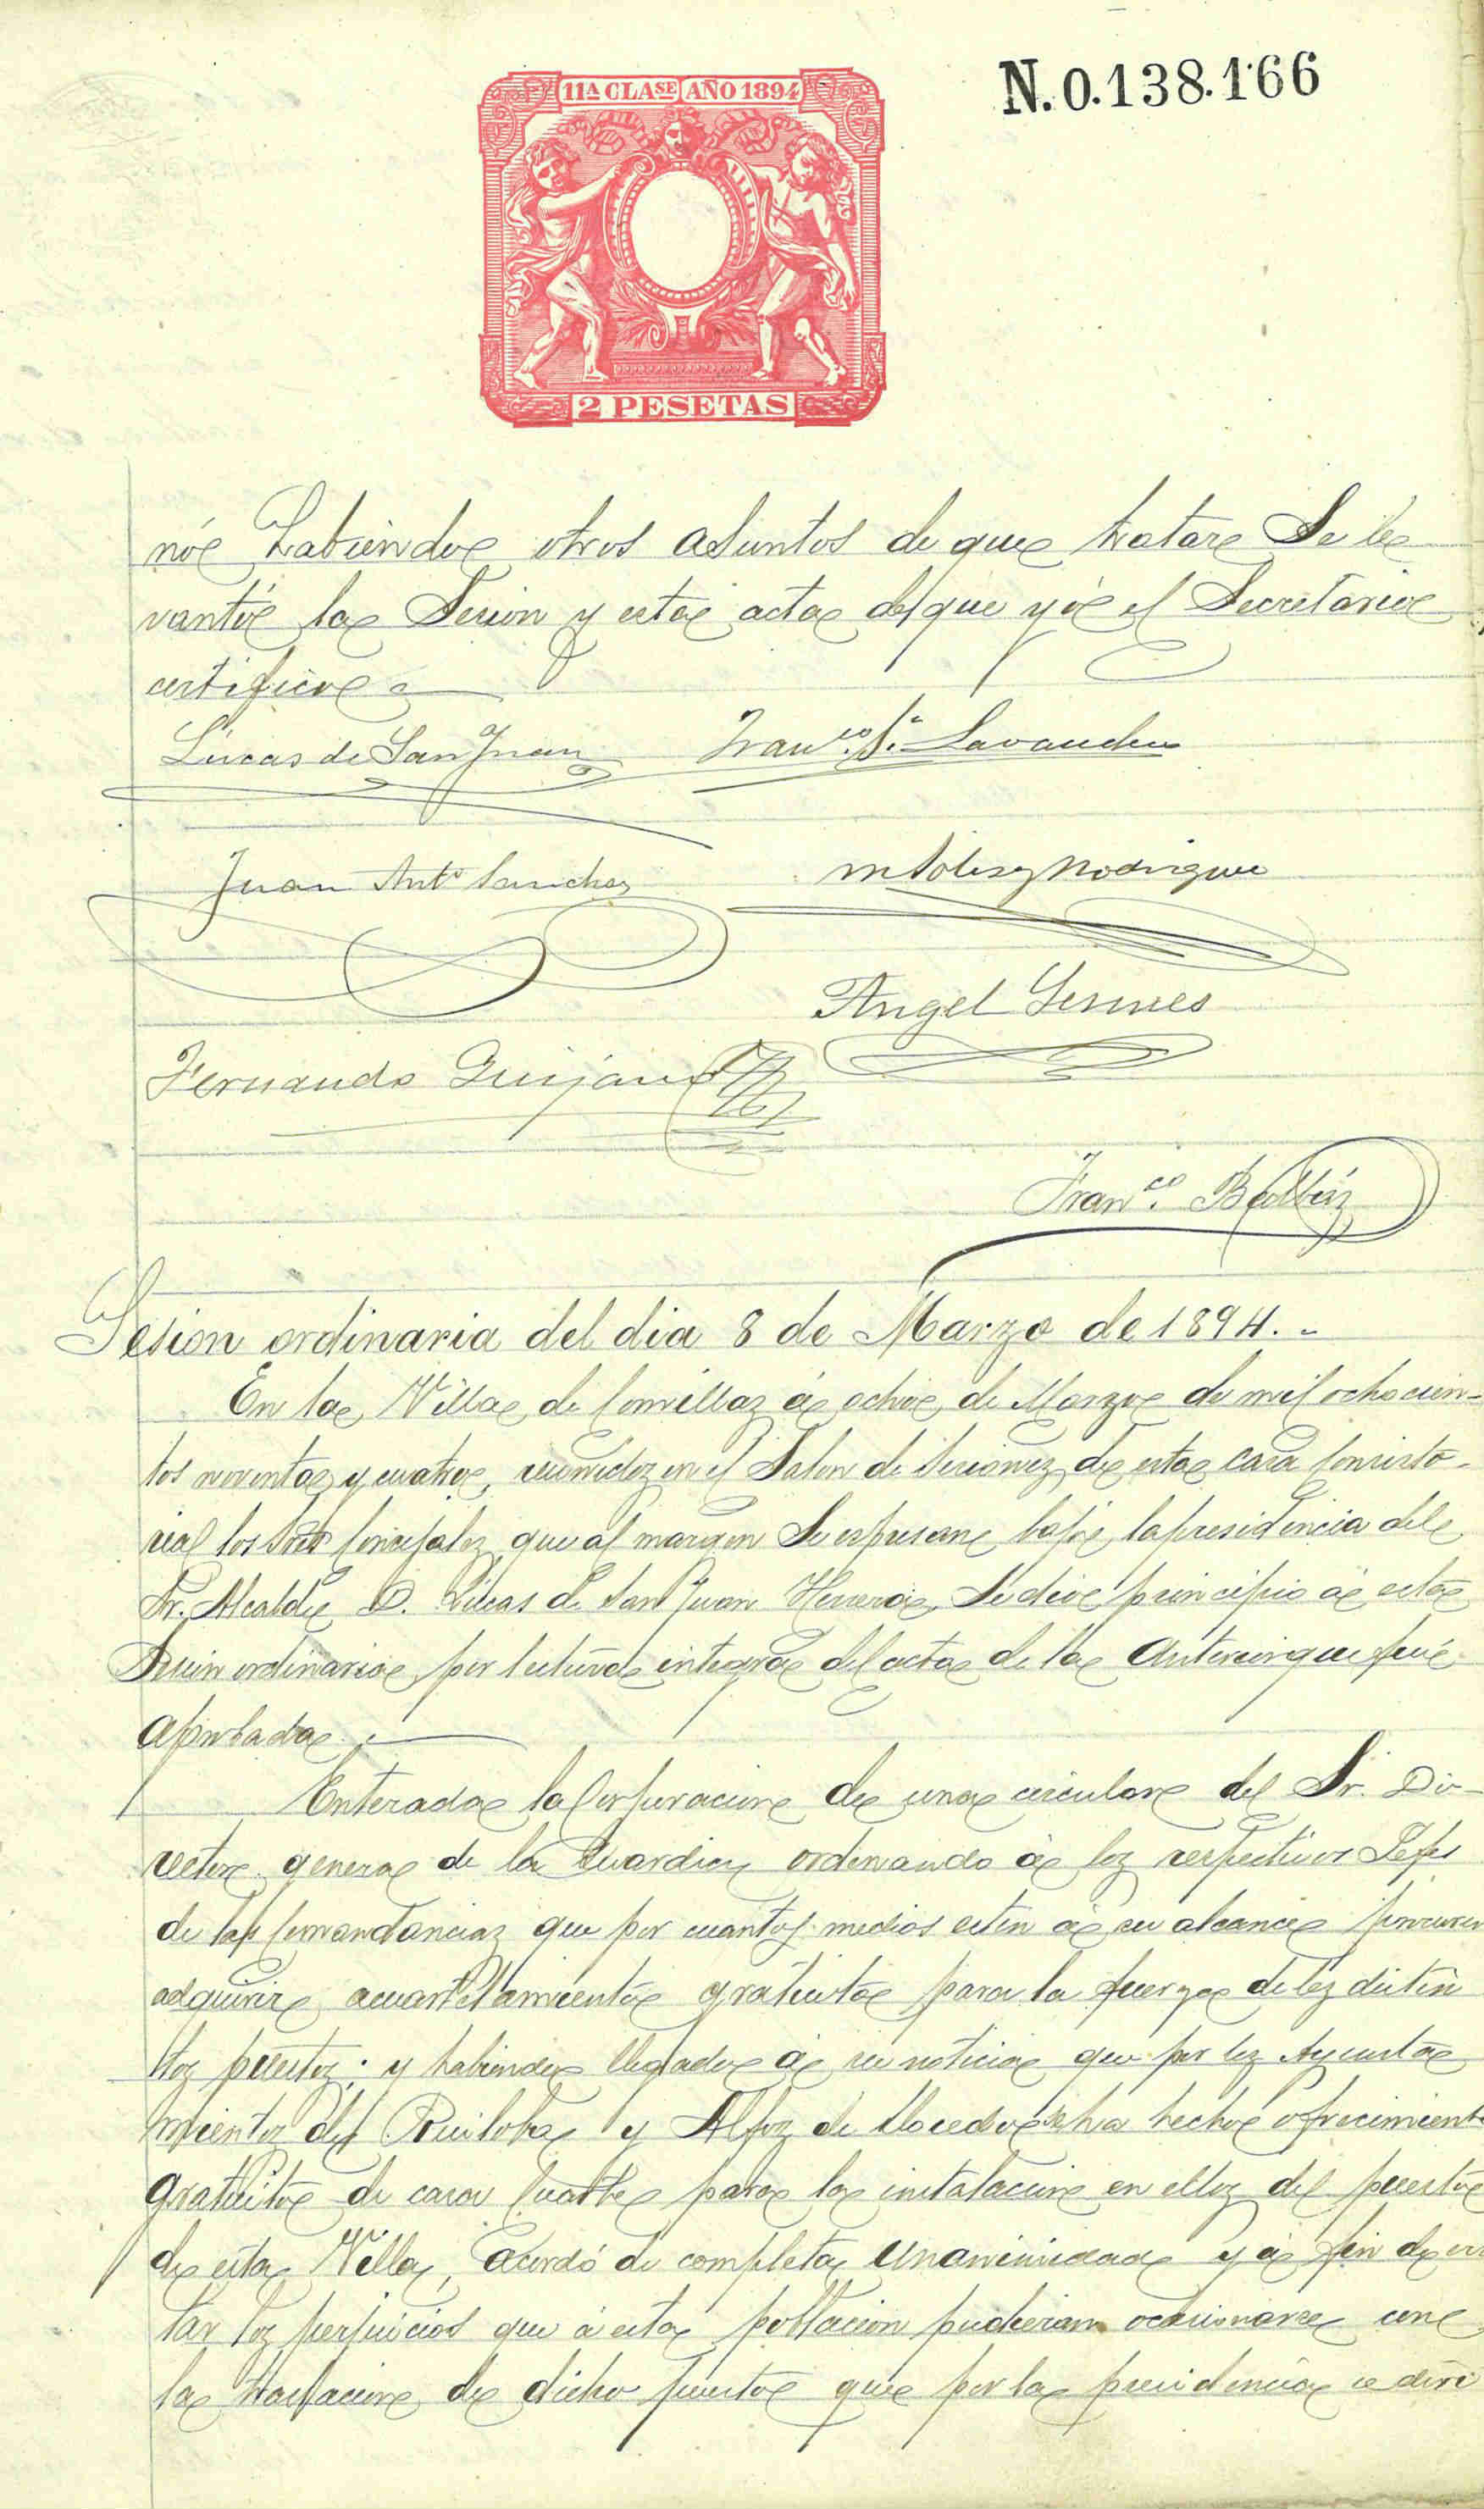 11A CLASE AÑO 1894
N.0.138.166
2 PESETAS
nó habiendo otros asuntos de que tratar Se le
vantó la Sesion y esta acta del que yó el Secretario
certifico
Lucas de San Juan Franco. S. Lavandera
Juan Anto Sanchez
Angel
Fernando Quijano
Franco.
Sesion ordinaria del dia 8 de Marzo de 1894.
En la Villa de Comillas á ocho de Marzo de mil ochocien-
tos noventa y cuatro, reunidos en el Salon de Sesiones de esta casa Consisto-
rial los Sres Concejales que al margen Se espresan bajo la presidencia del
Sr. Alcalde D. Lucas de San Juan Herrera, Se dió principio á esta
Sesion ordinaria por lectura integra del acta de la Anterior que fué
aprobada.
Enterada la Corporacion de una circular del Sr. Di-
rector general de la Guardia ordenando á los respectivos Gefes
de las Comandancias que por cuantos medios esten á su alcance procuren
adquirir acuartelamiento gratuito para la fuerza de los distin
tos puestos; y habiendo llegado á su noticia que por los Ayunta
mientos de Ruiloba y Alfoz de Lloredo se ha hecho ofrecimiento
gratuito de casa Cuartel para la instalacion en ellos del puesto
de esta Villa, acordó de completa unanimidad y á fin de evi
tar los perjuicios que á esta poblacion pudieran ocasionarse con
la traslacion de dicho puesto que por la presidencia se diri